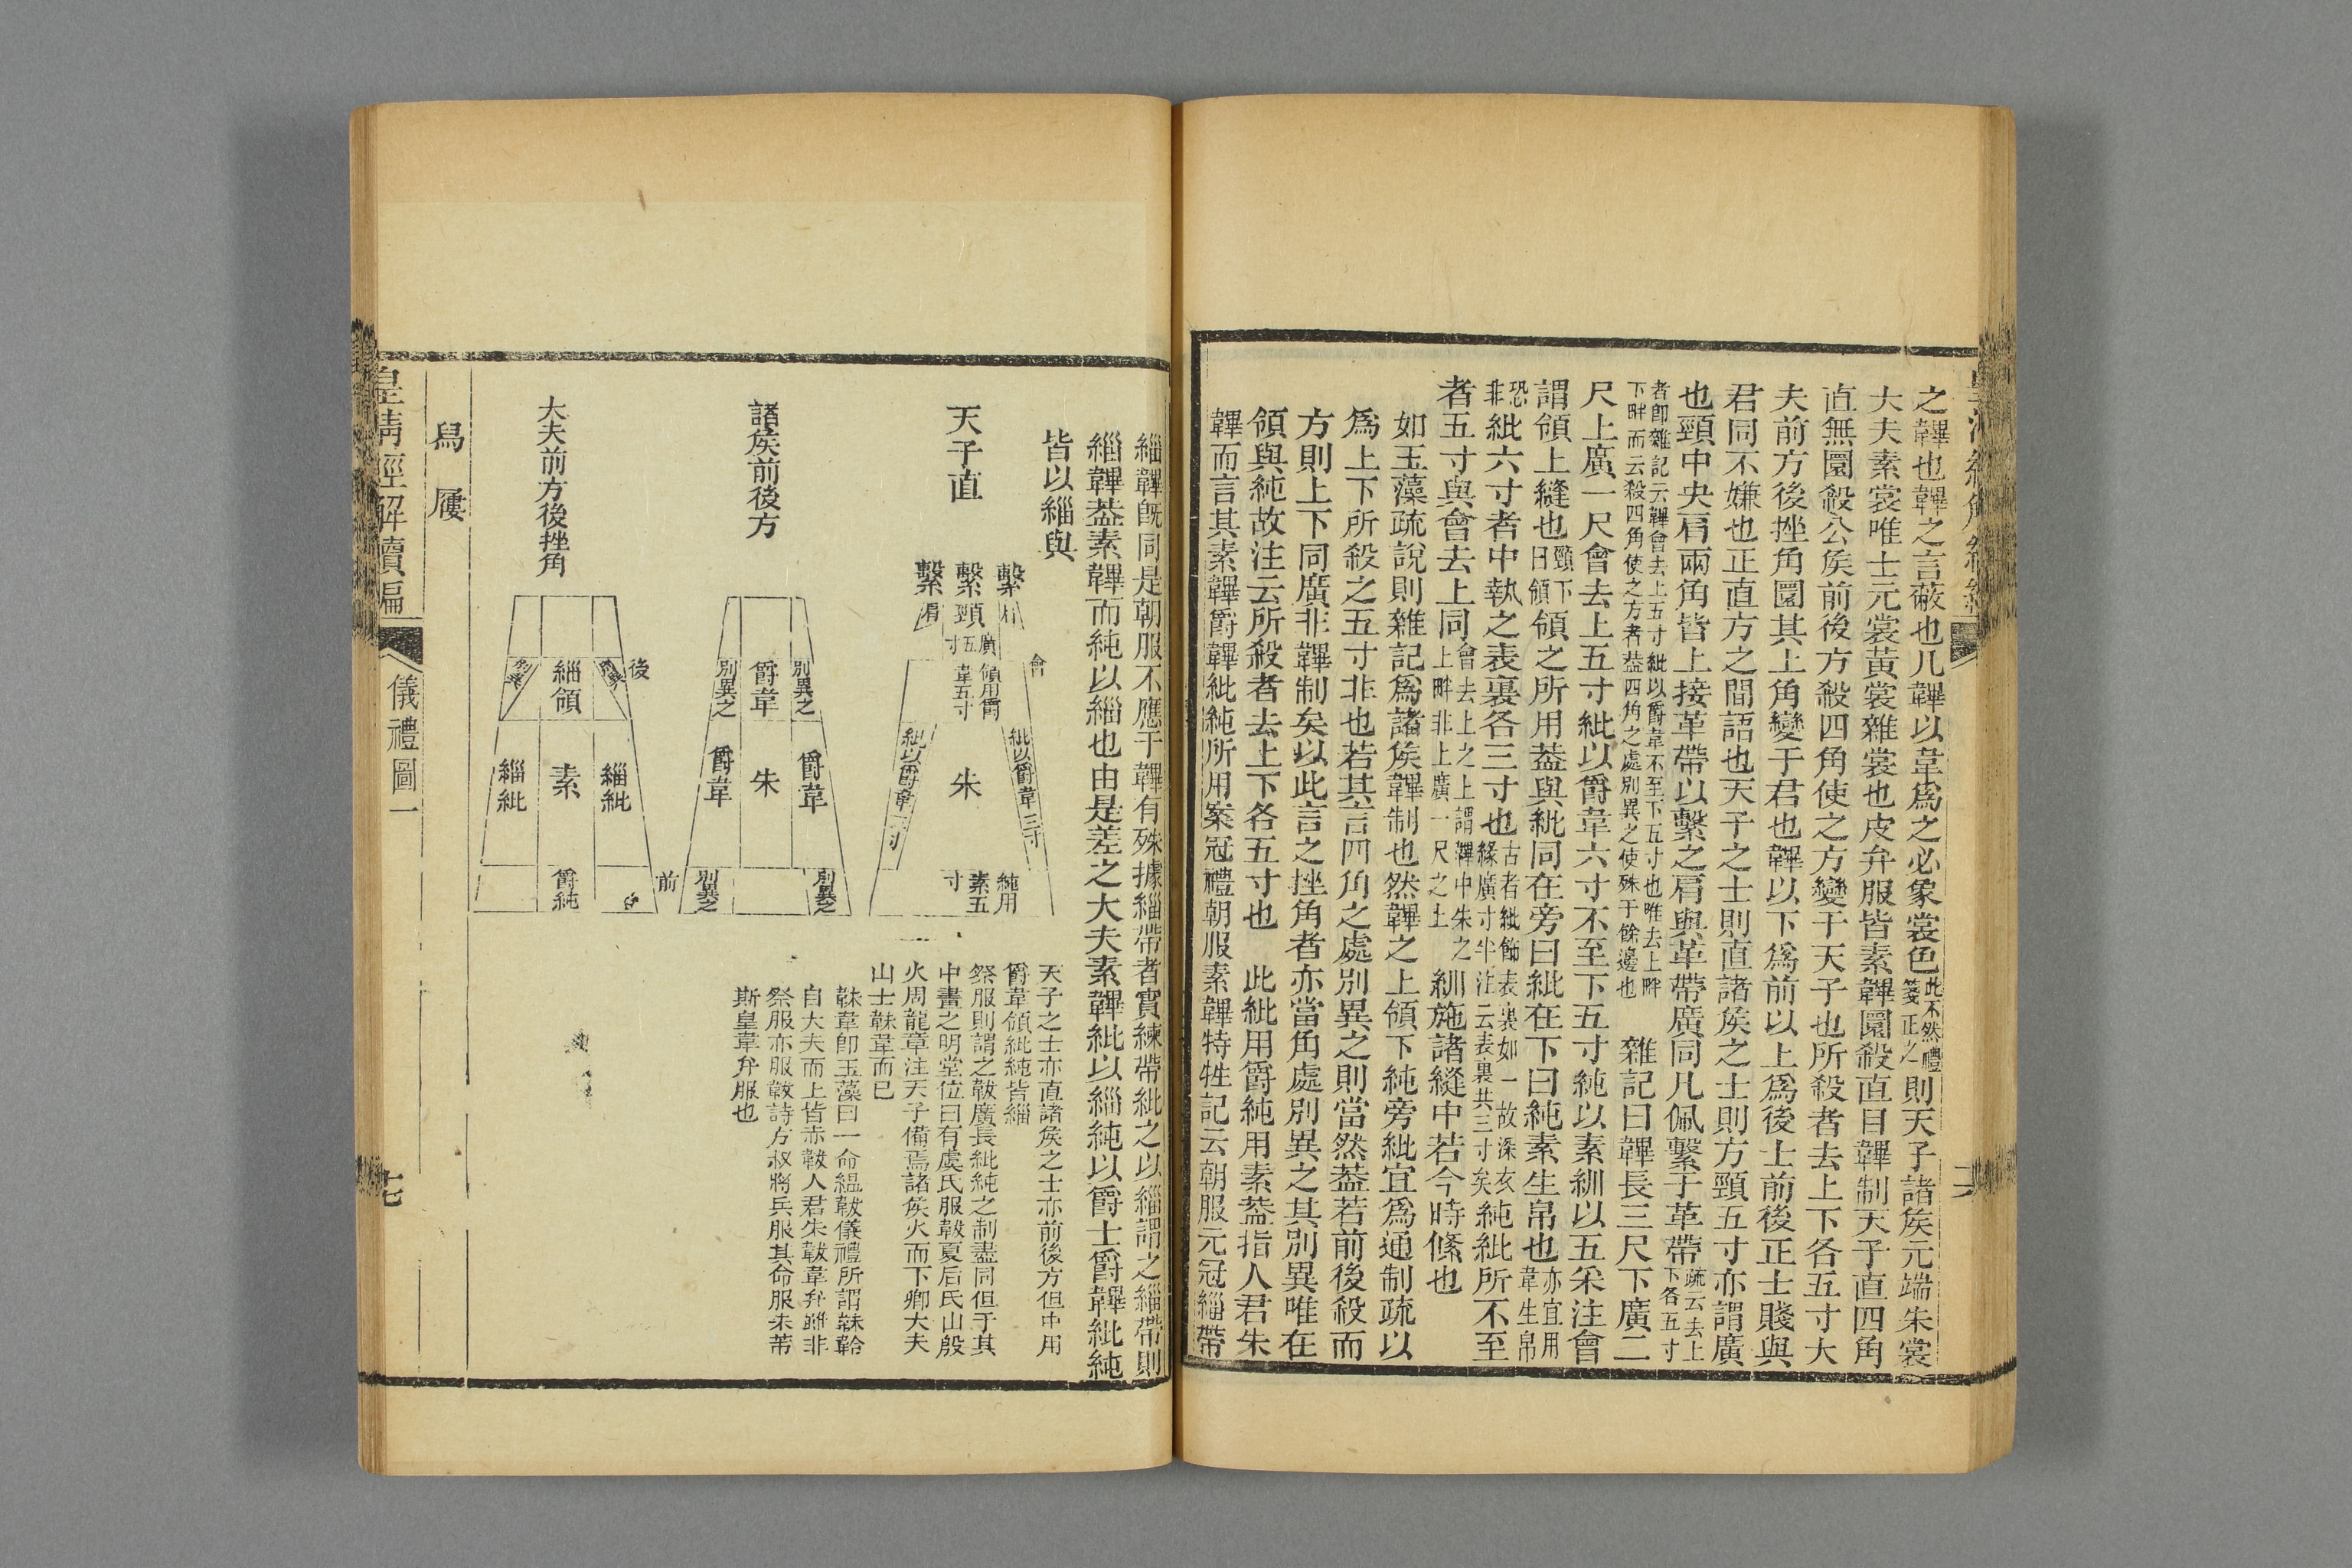 之韠也韠之言蔽也凡韠以韋爲之必象裳色此不然禮箋正之則天子諸矦元端朱裳
大夫素裳唯士元裳黃裳雜裳也皮弁服皆素韠圜殺直目韠制天子直四角
直無圜殺公矦前後方殺四角使之方變于天子也所殺者去上下各五寸大
夫前方後挫角圜其上角變于君也韠以下爲前以上爲後士前後正士賤與
君同不嫌也正直方之間語也天子之士則直諸矦之士則方頸五寸亦謂廣
也頸中央肩兩角皆上接革帶以繫之肩與革帶廣同凡佩繫于革帶疏云去上下各五寸
者卽雜記云韠會去上五寸紕以爵韋不至下五寸也唯去上畔下畔而云殺四角使之方者葢四角之處別異之使殊于餘邊也　雜記曰韠長三尺下廣二
尺上廣一尺會去上五寸紕以爵韋六寸不至下五寸純以素紃以五采注會
謂領上縫也頸下曰領領之所用葢與紕同在旁曰紕在下曰純素生帛也亦宜用韋生帛
恐非紕六寸者中執之表裏各三寸也古者紕飾表裏如一故深衣緣廣寸半注云表裏共三寸矣純紕所不至
者五寸與會去上同會去上之上謂韠中朱之上畔非上廣一尺之上　紃施諸縫中若今時絛也
如玉藻疏說則雜記爲諸矦韠制也然韠之上領下純旁紕宜爲通制疏以
爲上下所殺之五寸非也若其言四角之處別異之則當然葢若前後殺而
方則上下同廣非韠制矣以此言之挫角者亦當角處別異之其別異唯在
領與純故注云所殺者去上下各五寸也　此紕用爵純用素葢指人君朱
韠而言其素韠爵韠紕純所用案冠禮朝服素韠特牲記云朝服元冠緇帶
緇韠旣同是朝服不應于韠有殊據緇帶者實練帶紕之以緇謂之緇帶則
緇韠葢素韠而純以緇也由是差之大夫素韠紕以緇純以爵士爵韠紕純
皆以緇與
天子直
繫
繫
繫
頸
肩
廣五寸
會
領用爵韋五寸
紕以爵韋三寸
朱
紕以爵韋三寸
純用素五寸
諸矦前後方
別異之
爵韋
別異之
爵韋
朱
爵韋
別異之
別異之
大夫前方後挫角
後
緇領
緇紕
素
緇紕
爵純
前
天子之士亦直諸矦之士亦前後方但中用
爵韋領紕純皆緇
祭服則謂之韍廣長紕純之制盡同但于其
中畫之明堂位曰有虞氏服韍夏后氏山殷
火周龍章注天子備焉諸矦火而下卿大夫
山士韎韋而已
韎韋卽玉藻曰一命緼韍儀禮所謂韎韐
自大夫而上皆赤韍人君朱韍韋弁雖非
祭服亦服韍詩方叔將兵服其命服朱芾
斯皇韋弁服也
舄屨
皇淸經解續編
儀禮圖一
七